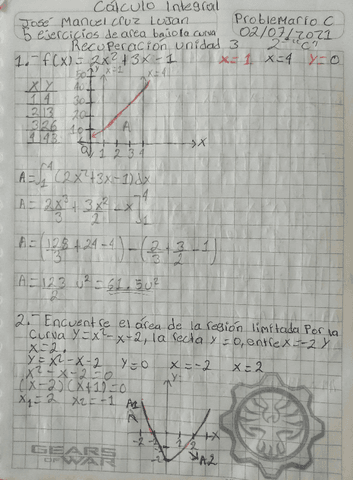 Cálculo Integral
José Manuel Cruz Lujan
Problemario C
5 ejercicios de area bajo la curva
02/07/2021
Recuperación unidad 3 2º "C"
1.- f(x) = 2x² + 3x - 1 x=1 x=4 y=0
x=1 x=4
X Y
1 4
2 13
3 26
4 43
50
40
30
20
10
0 1 2 3 4 X
A
A=∫₁⁴ (2x²+3x-1)dx
A= 2x³/3 + 3x²/2 - x]₁⁴
A=(128/3 + 24 - 4) - (2/3 + 3/2 - 1)
A= 123/2 u² = 61.5u²
2.- Encuentre el área de la región limitada Por la
curva y=x²-x-2, la recta y=0, entre x=-2 y
x=2.
y=x²-x-2 y=0 x=-2 x=2
x²-x-2=0
(x-2)(x+1)=0
x₁=2 x₂=-1
A1
A2
X
Y
GEARS
OF WAR